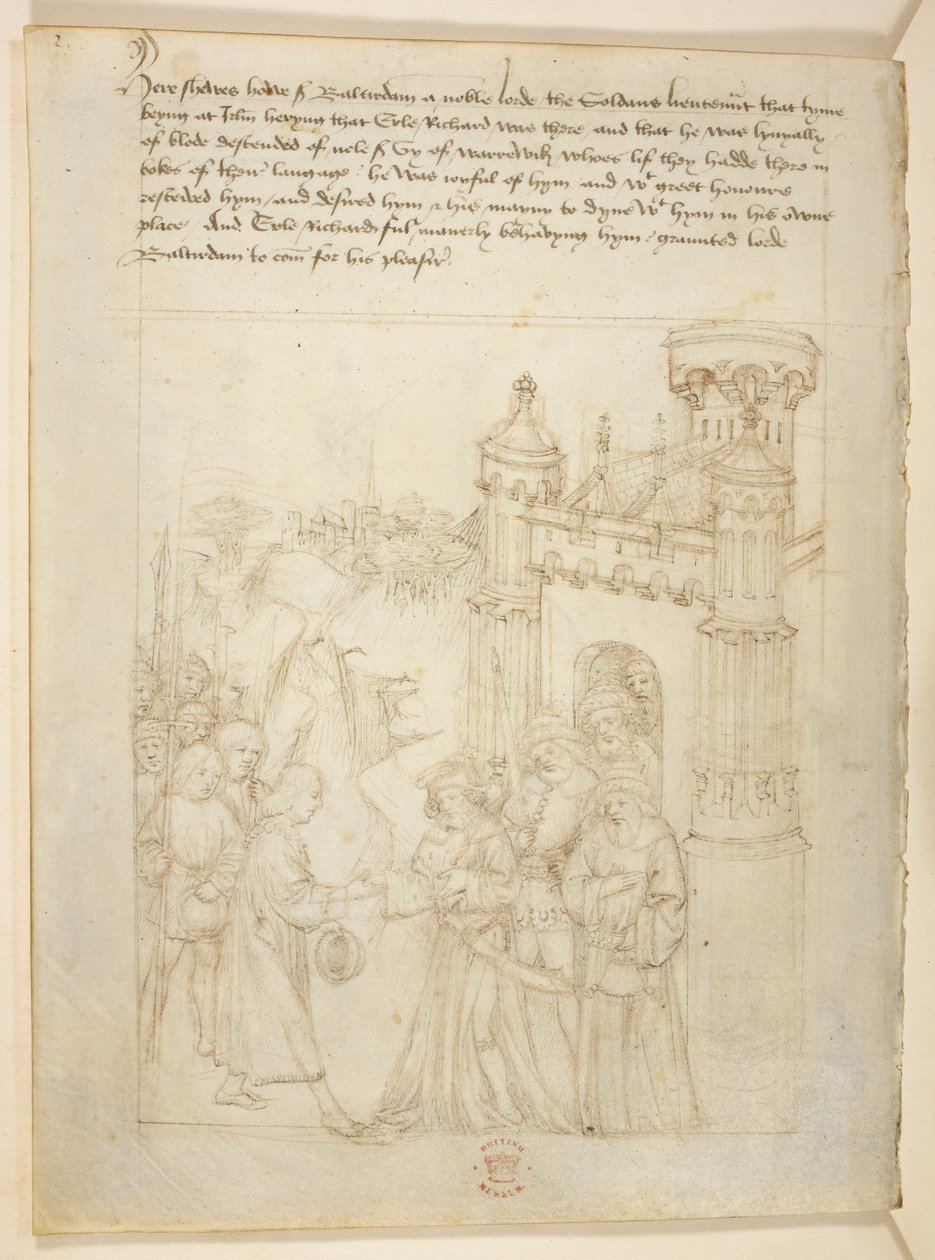 2
Here shewes howe sr Baltirdam a noble lorde the Soldans lieutenũt that tyme
beyng at Irlm heryng that Erle Richard was there and that he was lynyally
of blode descended of nole sr Gy of warrewik whoes lif they hadde there in
bokes of their langage / he was ioyful of hym and wt greet honoure
resceived hym / and desired hym & his mayny to dyne wt hym in his owne
place / And Erle Richard ful manerly behavyng hym / graunted lorde
Baltirdam to com for his pleasir
BRITISH
MUSEUM